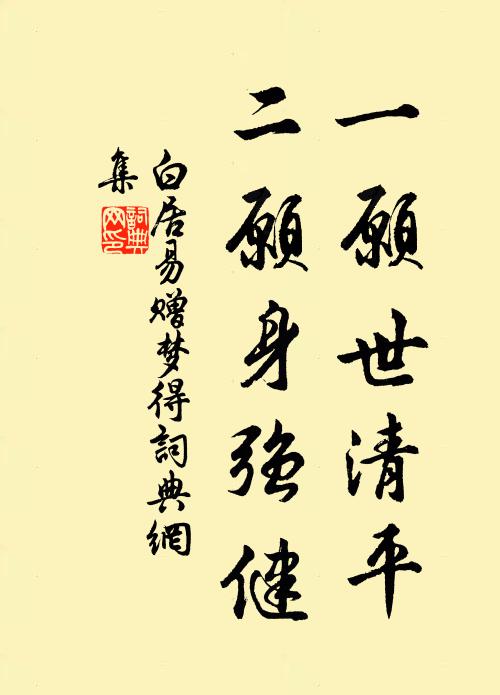 一願世清平
二願身強健
白居易贈梦得詞典網
集
詞典
网印